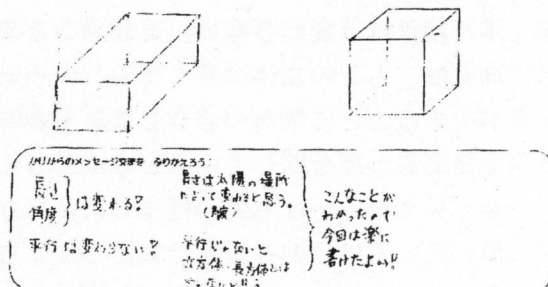 からのメッセージ交流を ふりかえろう
長さ
角度
は変わる?
平行は変わらない?
長さは太陽の場所
によって変わると思う。
平行じゃないと
立方体・長方体とは
こんなことが
わかったので
今回は楽に
書けたよ